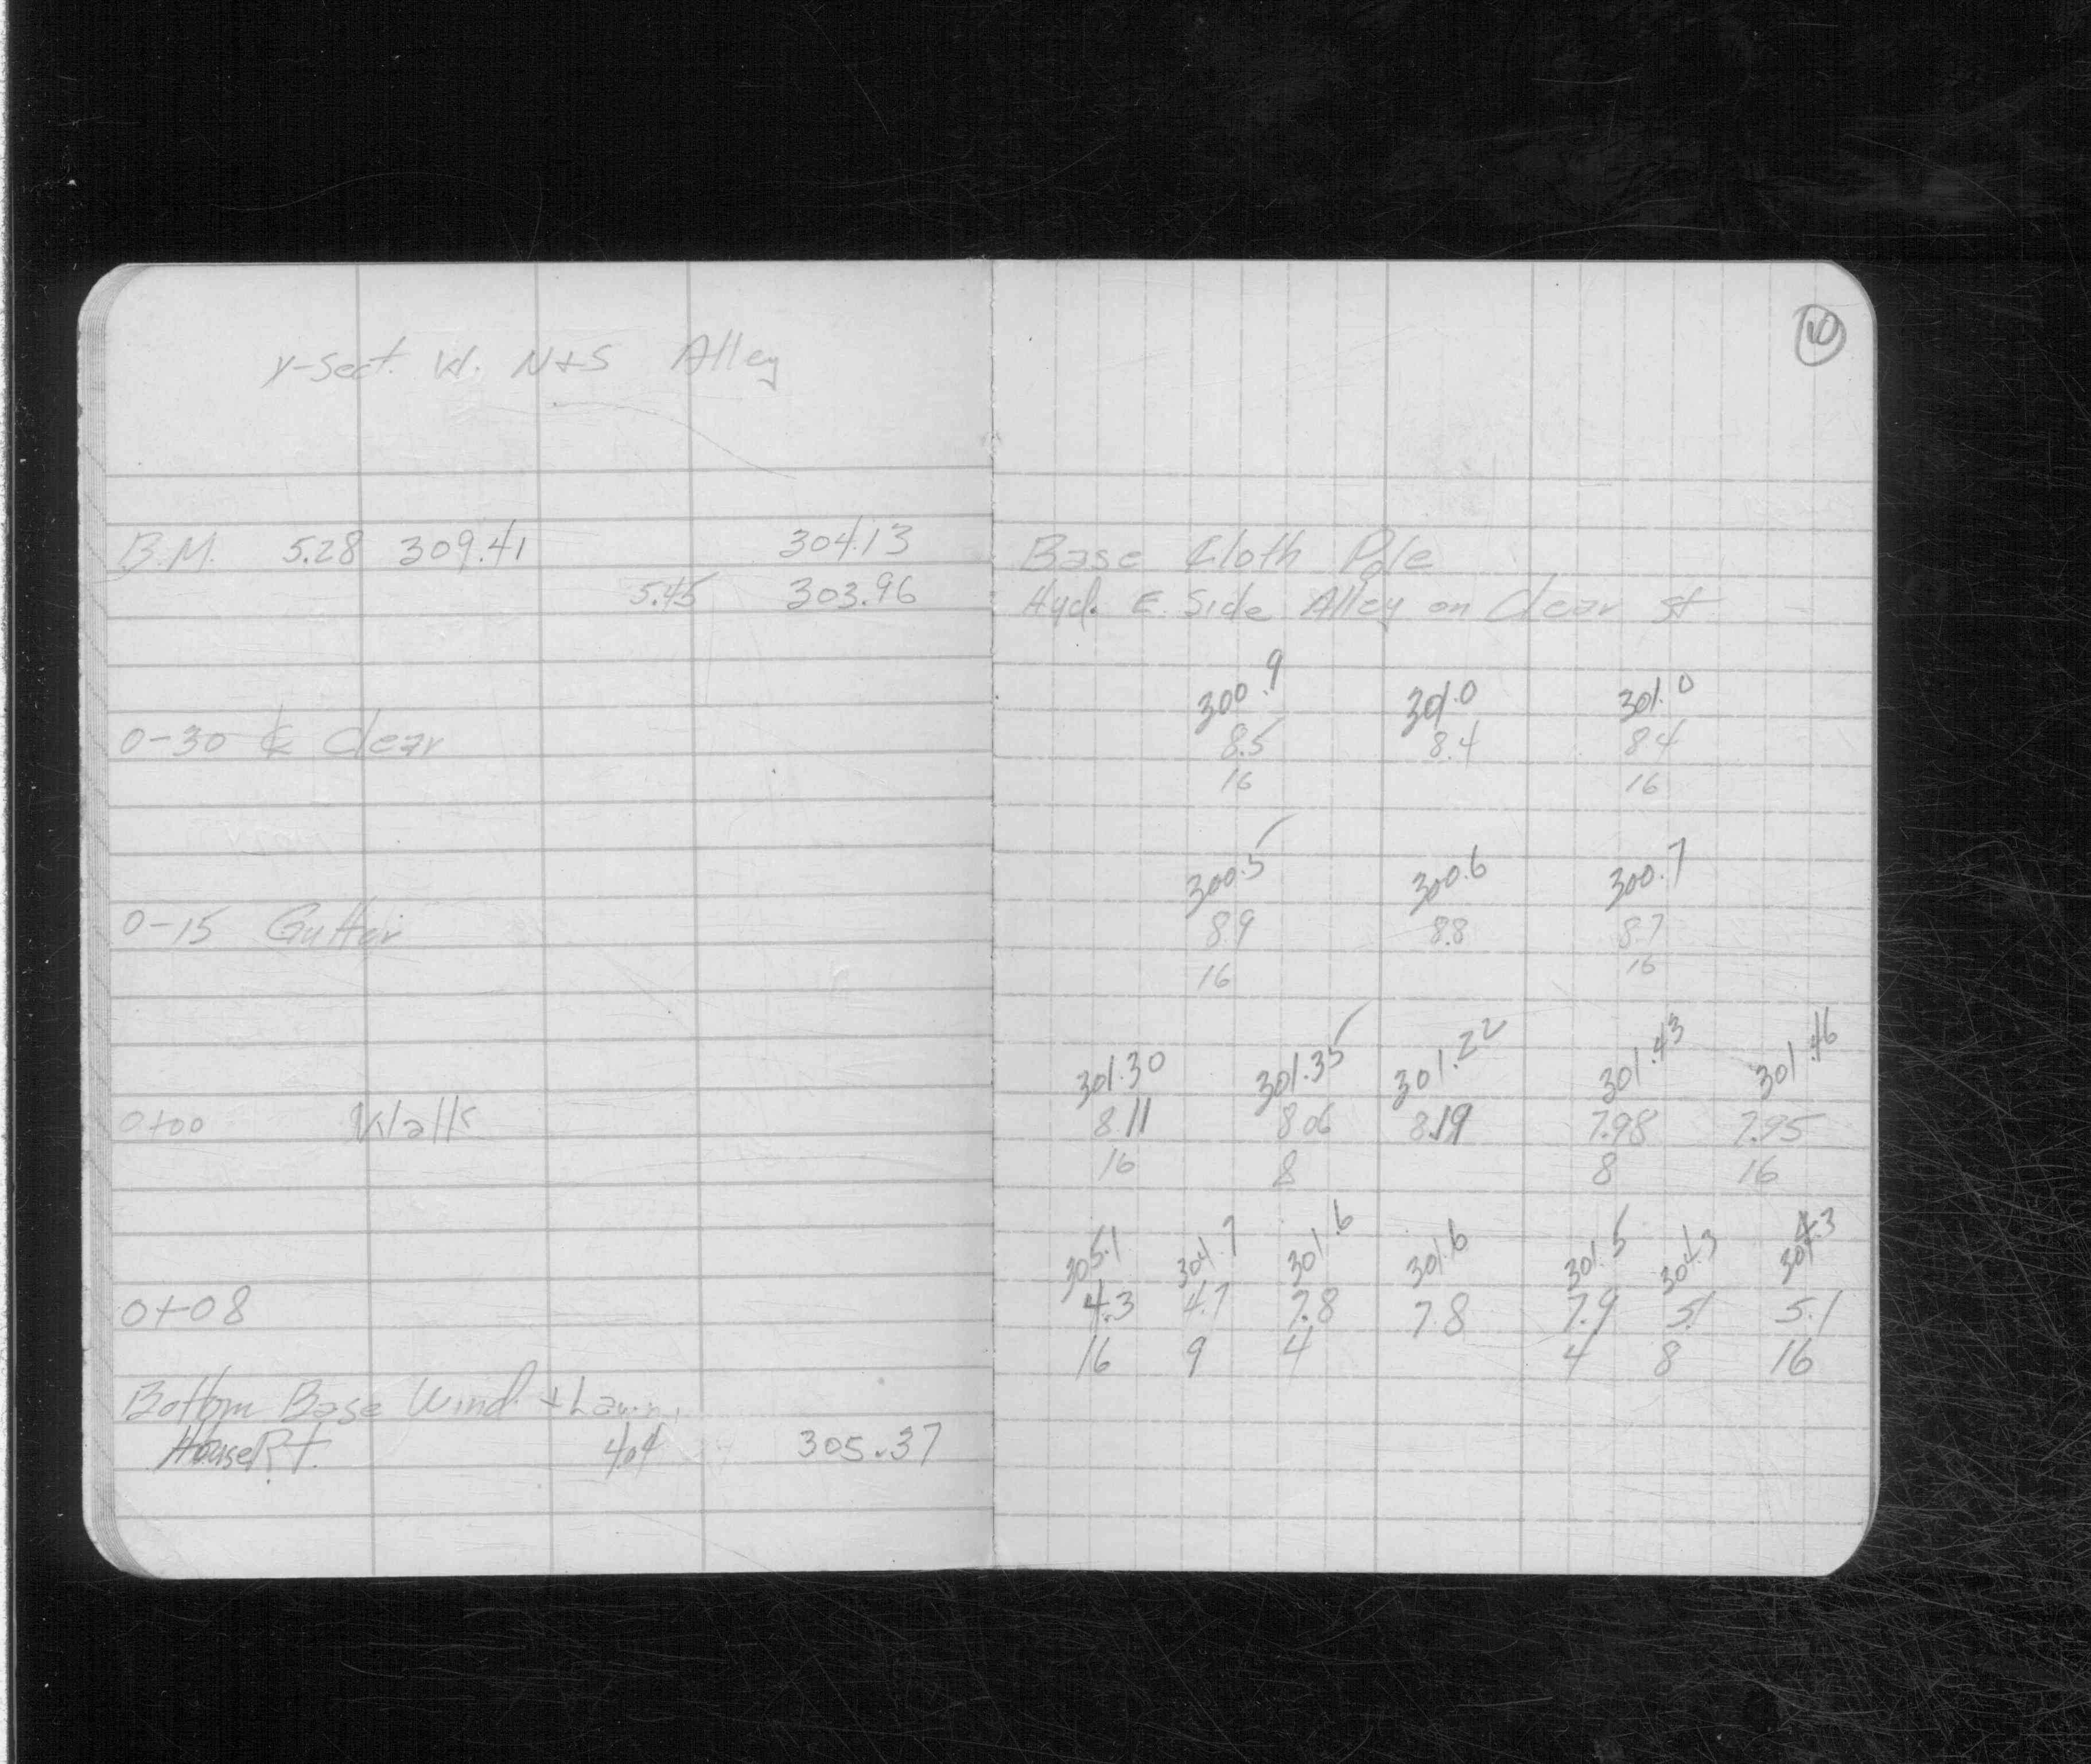 X-Sect. W. N+S Alley
10
B.M. 5.28 309.41 304.13 Base Cloth Pole
5.45 303.96 Hyd. E. Side Alley on Clear St
300.9 301.0 301.0
0-30 ℄ Clear 8.5 8.4 8.4
16 16
300.5 300.6 300.7
0-15 Gutter 8.9 8.8 8.7
16 16
301.30 301.35 301.22 301.43 301.46
0+00 Walk 8.11 8.06 8.19 7.98 7.95
16 8 8 16
305.1 304.7 301.6 301.6 301.5 304.3 304.3
0+08 4.3 4.7 7.8 7.8 7.9 5.1 5.1
16 9 4 4 8 16
Bottom Base Wind. + Lawn
House Rt. 4.04 305.37